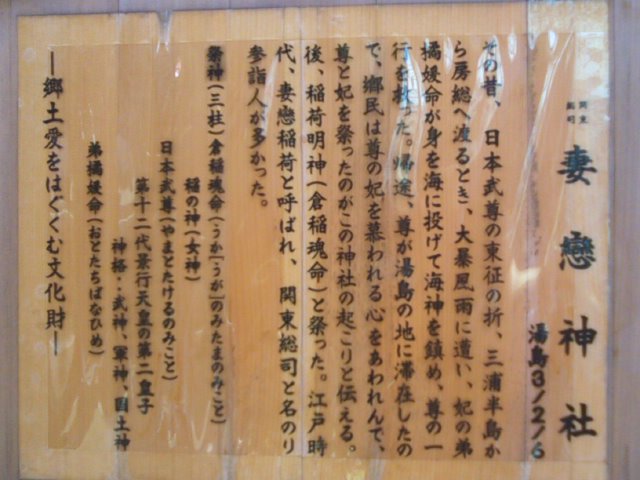 関東
総司
妻戀神社
湯島3/2/6
その昔、日本武尊の東征の折、三浦半島か
ら房総へ渡るとき、大暴風雨に遭い、妃の弟
橘媛命が身を海に投げて海神を鎮め、尊の一
行を救った。帰途、尊が湯島の地に滞在したの
で、郷民は尊の妃を慕われる心をあわれんで、
尊と妃を祭ったのがこの神社の起こりと伝える。
後、稲荷明神(倉稲魂命)と祭った。江戸時
代、妻戀稲荷と呼ばれ、関東総司と名のり
参詣人が多かった。
祭神(三柱)倉稲魂命(うか[うが]のみたまのみこと)
稲の神(女神)
日本武尊(やまとたけるのみこと)
第十二代景行天皇の第二皇子
神格・・武神、軍神、国土神
弟橘媛命(おとたちばなひめ)
―郷土愛をはぐくむ文化財―